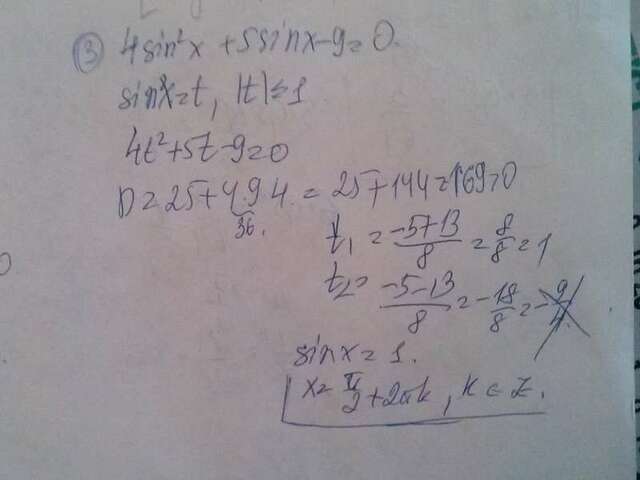 ③ 4sin²x + 5sinx - 9 = 0.
sinx = t, |t| ≤ 1
4t² + 5t - 9 = 0
D = 25 + 4·9·4 = 25 + 144 = 169 > 0
36.
t₁ = (-5+13)/8 = 8/8 = 1
t₂ = (-5-13)/8 = -18/8 = -9/4
sinx = 1.
x = π/2 + 2πk, k ∈ Z.